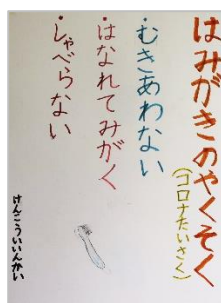 はみがきのやくそく
(コロナたいさく)
・むきあわない
・はなれてみがく
・しゃべらない
けんこういいんかい